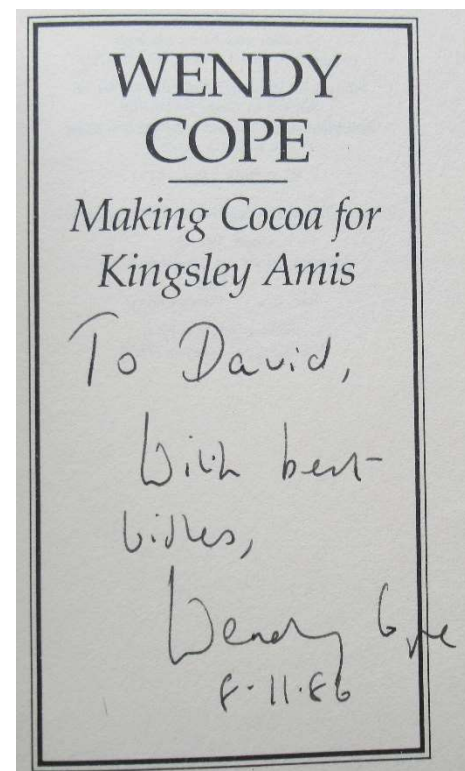 WENDY
COPE
Making Cocoa for
Kingsley Amis
To David,
With best
wishes,
Wendy Cope
8.11.86